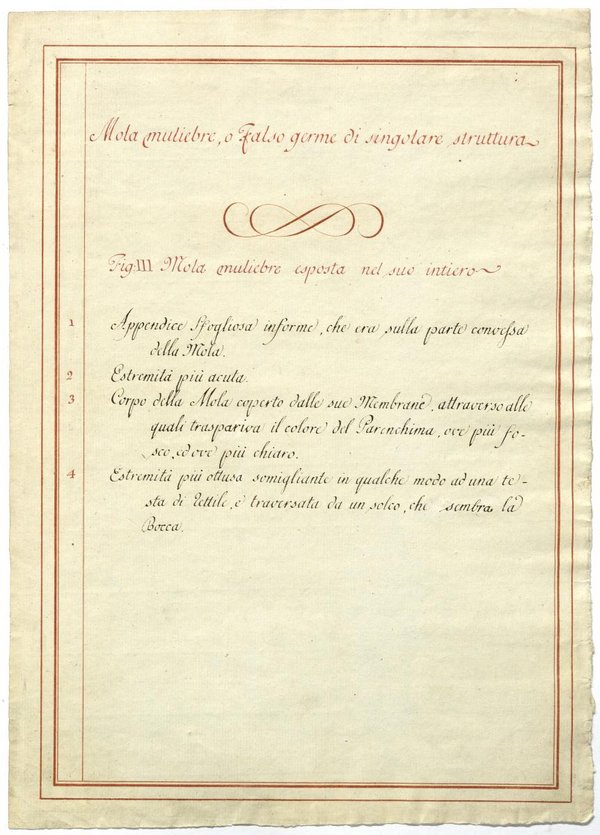 Mola muliebre, o Falso germe di singolare struttura
Fig. III Mola muliebre esposta nel suo intiero
1 Appendice sfogliosa informe, che era sulla parte convessa
della Mola.
2 Estremità più acuta.
3 Corpo della Mola coperto dalle sue Membrane, attraverso alle
quali traspariva il colore del Parenchima, ove più fo-
sco, ed ove più chiaro.
4 Estremità più ottusa somigliante in qualche modo ad una te-
sta di Rettile, e traversata da un solco, che sembra la
Bocca.